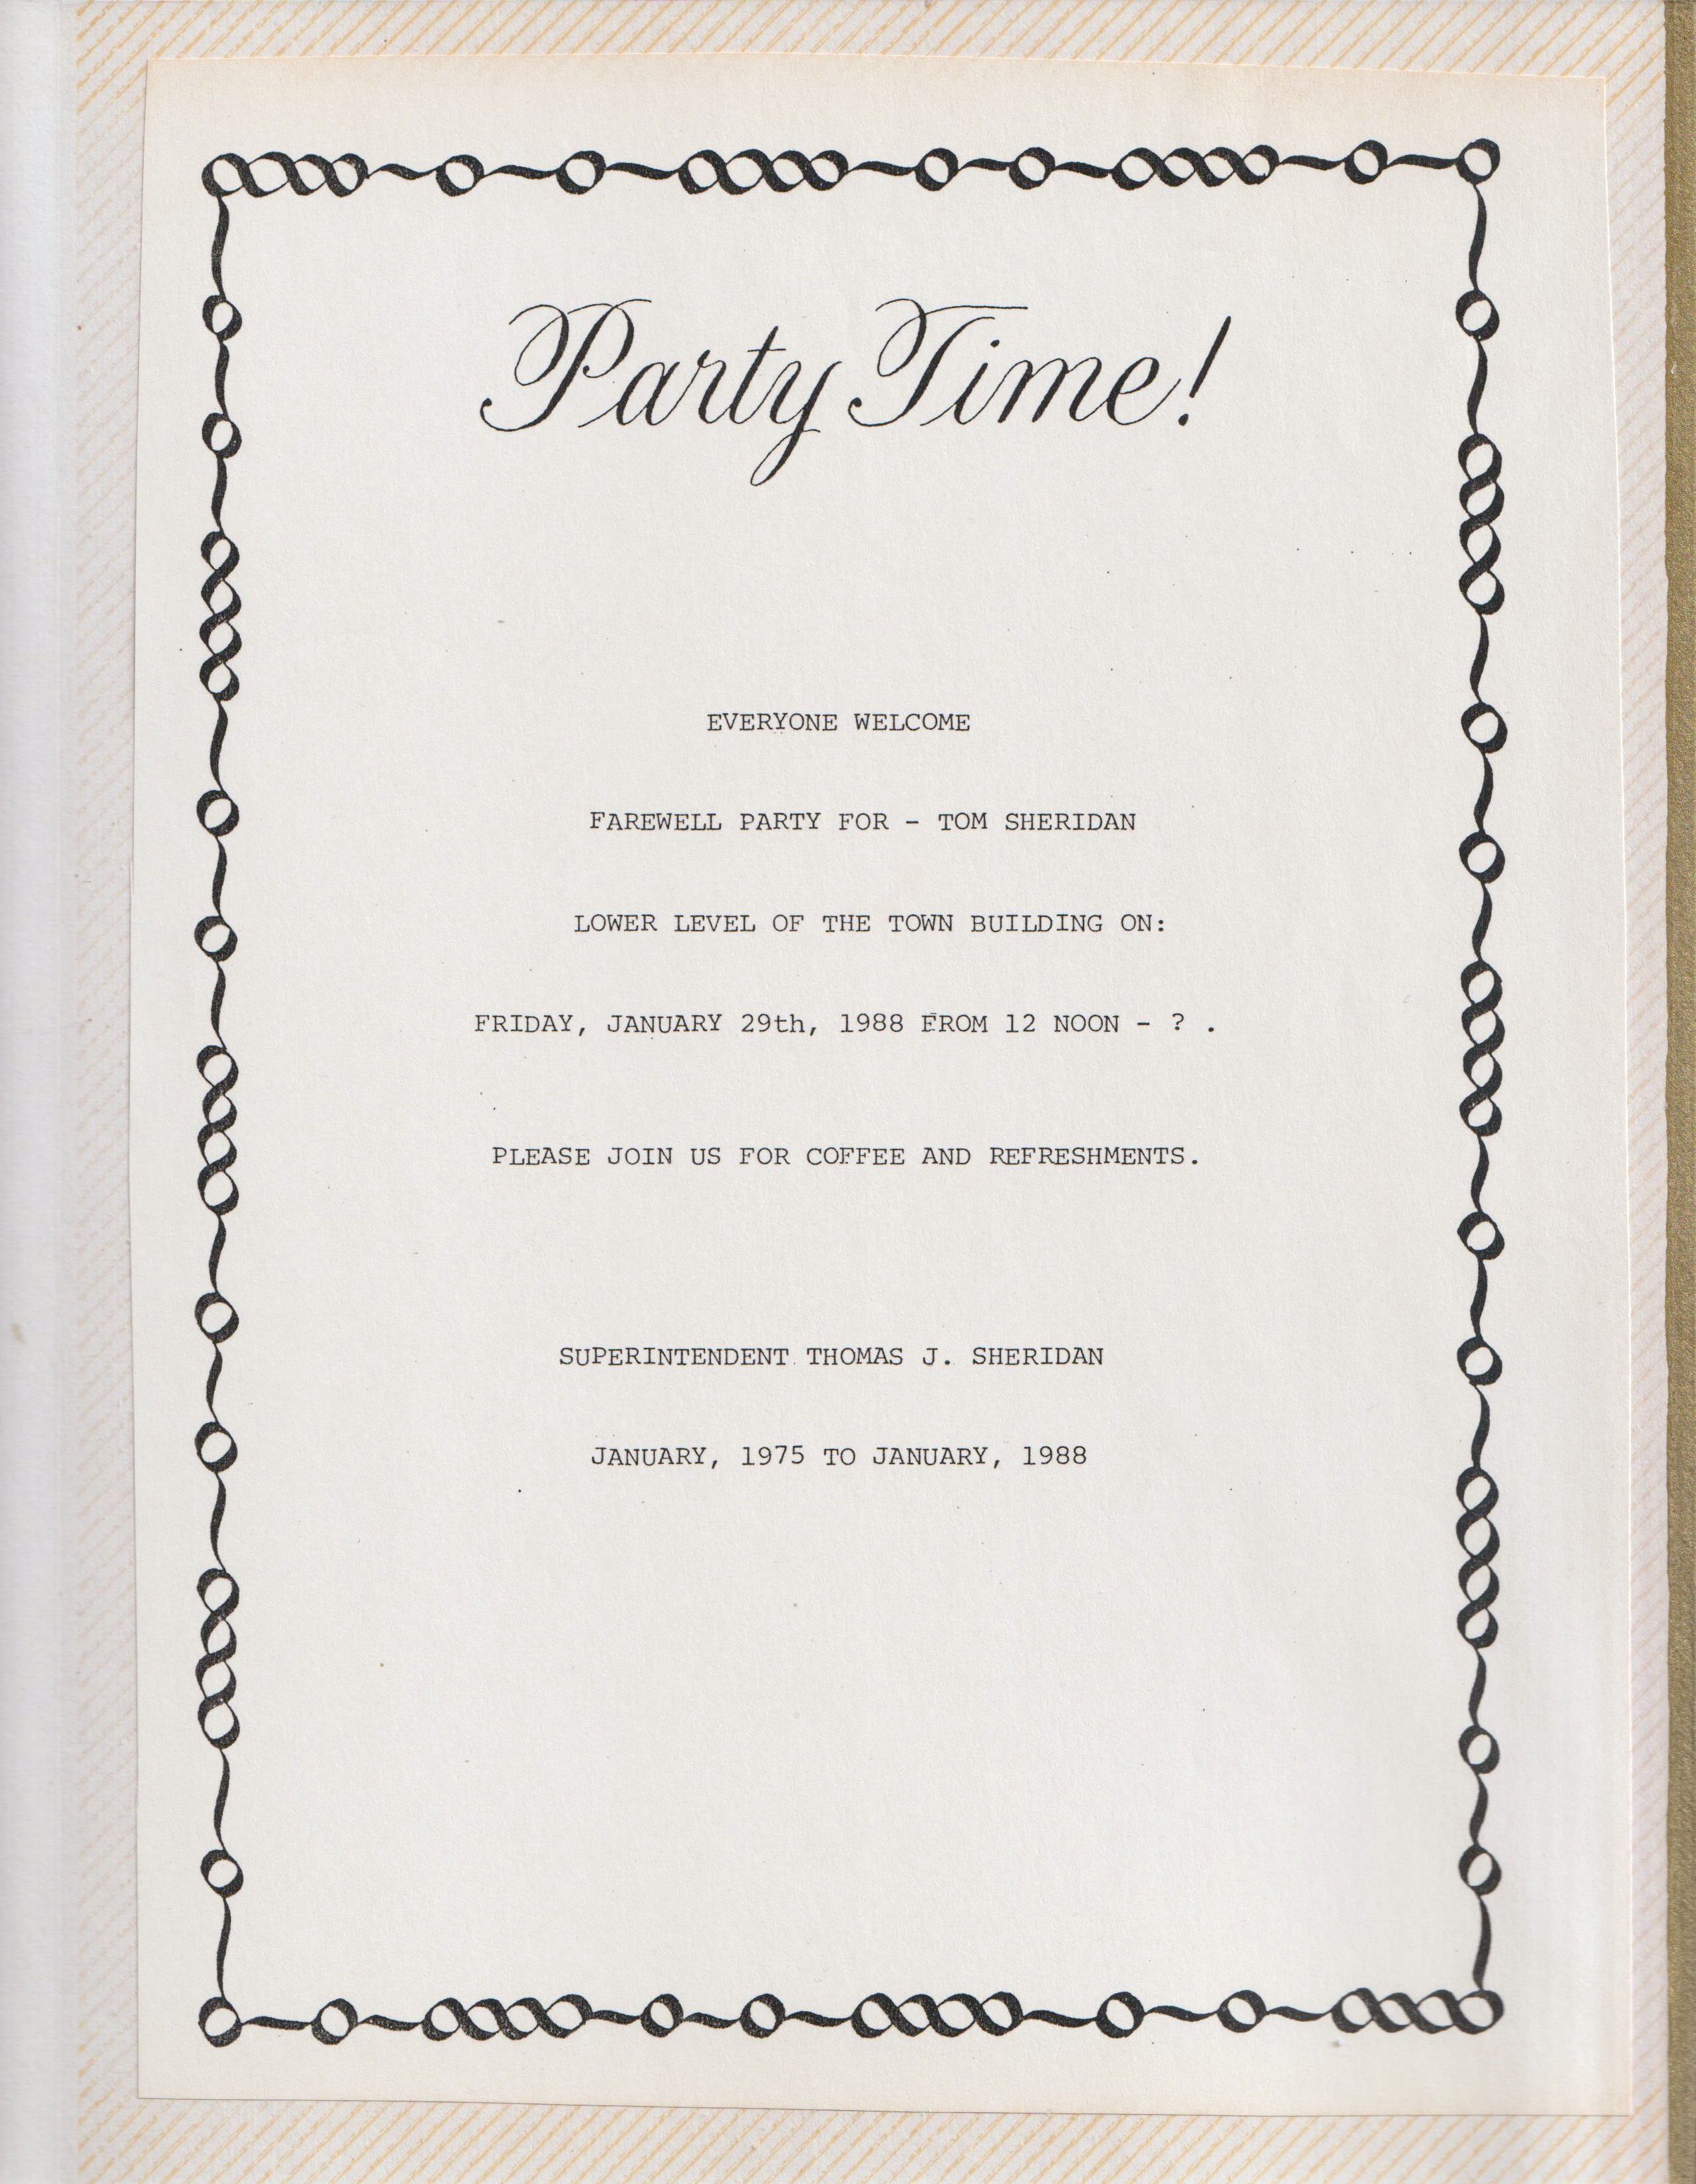 Party Time!
EVERYONE WELCOME
FAREWELL PARTY FOR - TOM SHERIDAN
LOWER LEVEL OF THE TOWN BUILDING ON:
FRIDAY, JANUARY 29th, 1988 FROM 12 NOON - ? .
PLEASE JOIN US FOR COFFEE AND REFRESHMENTS.
SUPERINTENDENT THOMAS J. SHERIDAN
JANUARY, 1975 TO JANUARY, 1988